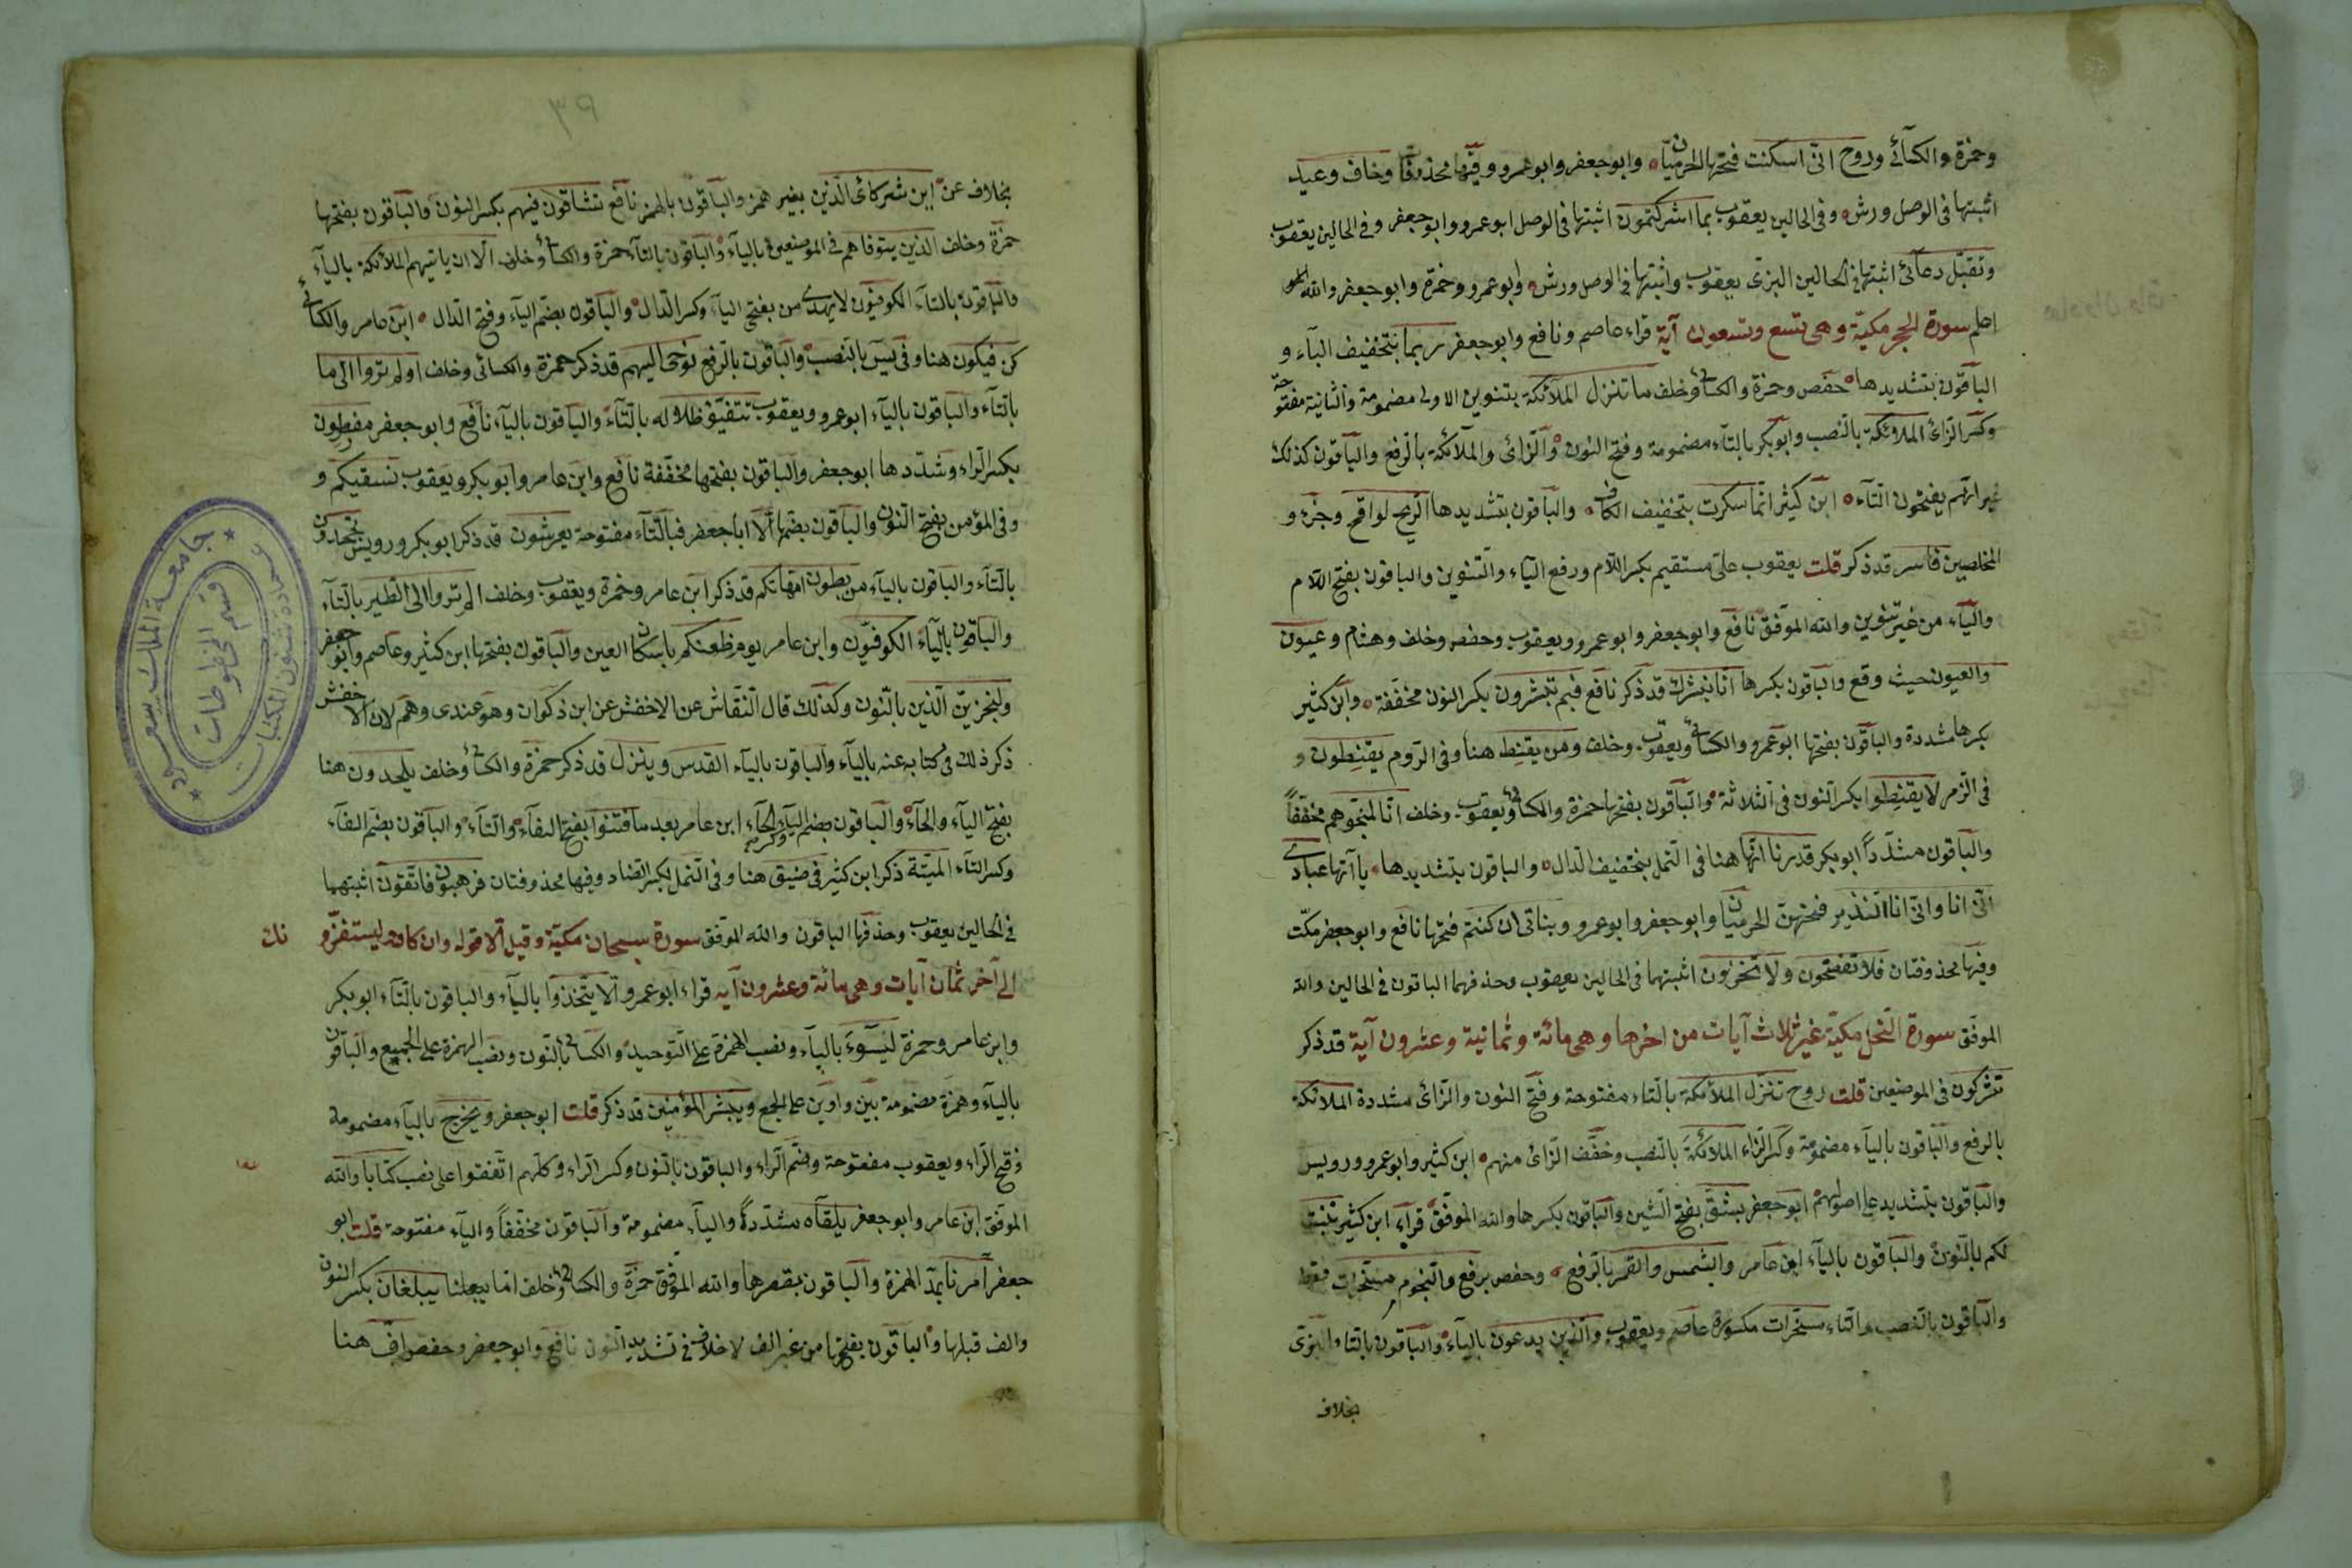 وحمزة والكسائي وروح انّى اسكنت فتحها الحرميّان وابوجعفر وابوعمرو وفيها محذوفات وخاف وعيد
اثبتها فى الوصل ورش وفى الحالين يعقوب بما اشركتمون اثبتها فى الوصل ابوعمرو وابوجعفر وفى الحالين يعقوب
وتقبّل دعآئى اثبتها فى الحالين البزى يعقوب واثبتها فى الوصل ورش وابوعمرو وحمزة وابوجعفر والله
اعلم سورة الحجر مكيّة وهى تسع وتسعون آية قراء عاصم ونافع وابوجعفر ربما بتخفيف البآء و
الباقون بتشديدها حفص وحمزة والكسائى وخلف ما تنزل الملائكة بتنوين الاولى مضمومة والثانية مفتوحة
وكسر الزاى الملائكة بالنصب وابوبكر بالتآء مضمومة وفتح النون والزاى والملآئكة بالرفع والباقون كذلك
غير انهم يفتحون التآء ابن كثير انّما سكرت بتخفيف الكاف والباقون بتشديدها الريح لواقح وجزء و
المخلصين فاسر قد ذكر قلت يعقوب علىّ مستقيم بكسر اللام ورفع اليآء والتنوين والباقون بفتح اللام
واليآء من غير تنوين والله الموفق نافع وابوجعفر وابوعمرو ويعقوب وحفص وخلف وهشام وعيون
والعيون حيث وقع والباقون بكسرها انا نبشرك قد ذكر نافع فبم تبشرون بكسر النون مخففة وابن كثير
بكسرها مشددة والباقون بفتحها ابوعمرو والكسائى ويعقوب وخلف ومن يقنط هنا وفى الروم يقنطون و
فى الزمر لا يقنطوا بكسر النون فى الثلاثة والباقون بفتحها حمزة والكسائى ويعقوب وخلف انّا لمنجّوهم مخففاً
والباقون مشدّداً ابوبكر قدرنا انّها هنا فى النمل بتخفيف الدال والباقون بتشديدها يا آتها عبادى
انّى انا وانّى انا النذير فتحهن الحرميان وابوجعفر وابوعمرو وبناتى ان كنتم فتحها نافع وابوجعفر مكّت
وفيها محذوفتان فلا تفضحون ولا تخزون اثبتهما فى الحالين يعقوب وحذفهما الباقون فى الحالين والله
الموفق سورة النحل مكيّة غير ثلاث آيات من اخرها وهى مائة وثمانية وعشرون آية قد ذكر
تشركون فى الموضعين قلت روح تنزّل الملآئكة بالتاء مفتوحة وفتح النون والزاى مشددة الملائكة
بالرفع والباقون باليآء مضمومة وكسر الزاء الملائكة بالنصب وخفف الزاى منهم ابن كثير وابوعمرو ورويس
والباقون بتشديد على اصولهم ابوجعفر بشق بفتح الشين والباقون بكسرها والله الموفق قراء ابن كثير ننبت
لكم بالنون والباقون باليآء ابن عامر والشمس والقمر بالرفع وحفص برفع والنجوم مسخرات فقط
والباقون بالنصب والتاء مسخرات مكسورة عاصم ويعقوب والذين يدعون باليآء والباقون بالتا والبزى
بخلاف
بخلاف عنه اين شركائى الذين بغير همز والباقون بالهمز نافع تشاقون فيهم بكسر النون والباقون بفتحها
حمزة وخلف الذين يتوفاهم فى الموضعين باليآء والباقون بالتآء حمزة والكسائى وخلف الا ان ياتيهم الملائكة باليآء
والباقون بالتآء الكوفيون لا يهدى من بفتح اليآء وكسر الدال والباقون بضم الياء وفتح الدال ابن عامر والكسائى
كن فيكون هنا وفى يس بالنصب والباقون بالرفع نوحى اليهم قد ذكر حمزة والكسائى وخلف اولم تروا الى ما
بالتآء والباقون باليآء ابوعمرو ويعقوب تتفيّؤ ظلاله بالتآء والباقون باليآء نافع وابوجعفر مفرطون
بكسر الراء وشدّدها ابوجعفر والباقون بفتحها مخففة نافع وابن عامر وابوبكر ويعقوب نسقيكم و
وفى المؤمن بفتح النون والباقون بضمّها الّا ابا جعفر فبالتآء مفتوحة يعرشون قد ذكر ابوبكر ورويس تجحدون
بالتآء والباقون باليآء من بطون امّهاتكم قد ذكر ابن عامر وحمزة ويعقوب وخلف الم تروا الى الطير بالتآء
والباقون باليآء الكوفيّون وابن عامر يوم ظعنكم باسكان العين والباقون بفتحها ابن كثير وعاصم وابوجعفر
ولنجزينّ الذين بالنون وكذلك قال النقاش عن الاخفش عن ابن ذكوان وهو عندى وهم لان الاخفش
ذكر ذلك فى كتابه عنه باليآء والباقون باليآء القدس وينزل قد ذكر حمزة والكسائى وخلف يلحدون هنا
بفتح اليآء والحآء والباقون بضم اليآء وكسر الحآء ابن عامر بعد ما فتنوا بفتح الفآء والتآء والباقون بضم الفآء
وكسر التآء الميّتة ذكر ابن كثير فى ضيق هنا وفى النمل بكسر الضاد وفيها محذوفتان فرهبون فاتقون اثبتهما
فى الحالين يعقوب وحذفها الباقون والله الموفق سورة سبحان مكيّة وقيل الا قوله وان كادو ليستفزّو نك
الى آخر ثمان آيات وهى مائة وعشرون آيه قراء ابوعمرو ألا يتخذوا باليآء والباقون بالتآء ابوبكر
وابن عامر وحمزة ليسوء باليآء ونصب الهمزة على التوحيد والكسائى بالنون ونصب الهمزة على الجميع والباقون
باليآء وهمزة مضمومة بين واوين على الجمع ويبشر المؤمنين قد ذكر قلت ابوجعفر ويخرج باليآء مضمومة
وفتح الراء ويعقوب مفتوحة وضم الراء والباقون بالنون وكسر الراء وكلهم اتفقوا على نصب كتابا والله
الموفق ابن عامر وابوجعفر يلقاه مشدّداً واليآء مضمومة والباقون مخففاً واليآء مفتوحة قلت ابو
جعفر آمرنا بمدّ الهمزة والباقون بقصرها والله الموفق حمزة والكسائى وخلف امّا يبلغان بكسر النون
والف قبلها والباقون بفتحها من غير الف لا خلاف فى تشديد النون نافع وابوجعفر وحفص افّ هنا
جامعة الملك سعود
عمادة شئون المكتبات
قسم المخطوطات